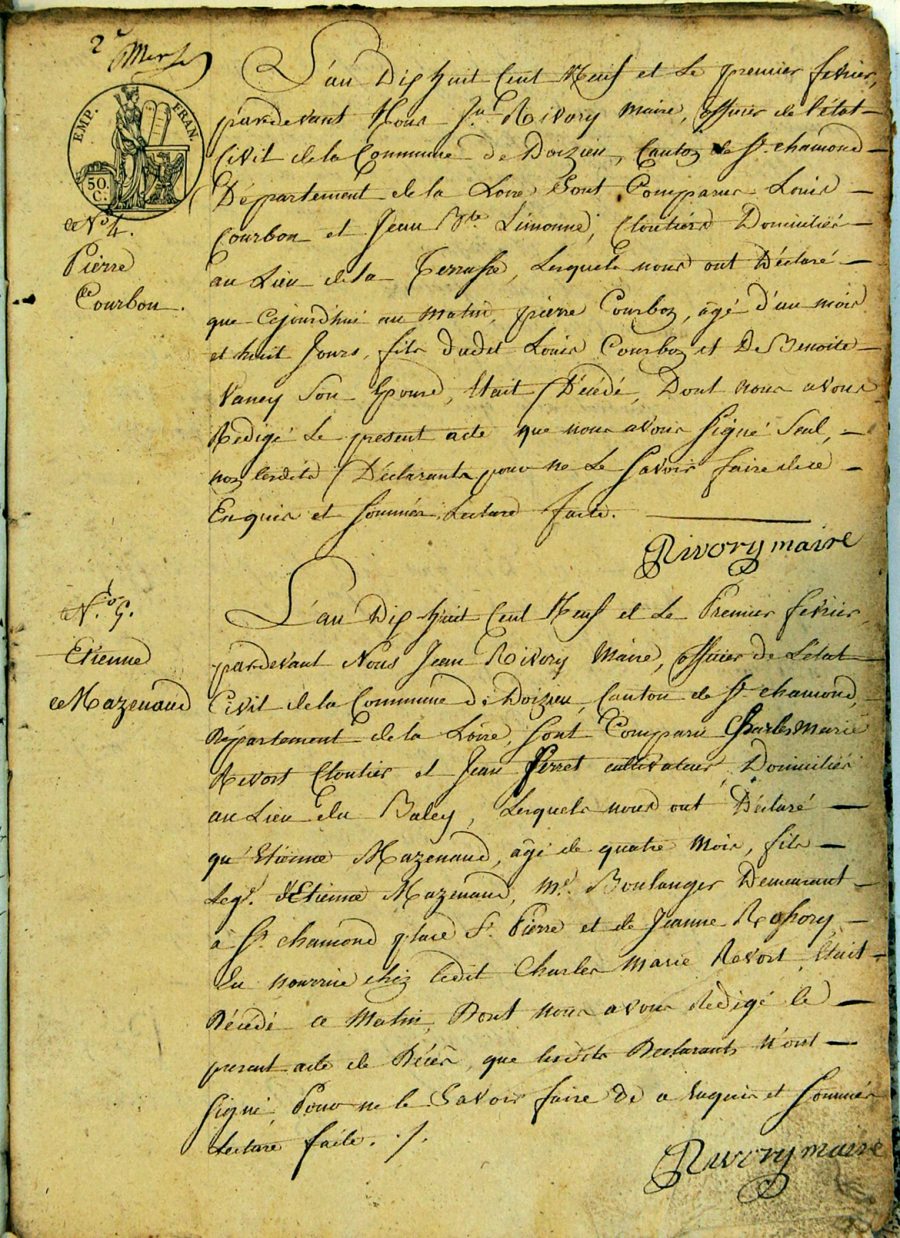 2e
EMP. FRAN.
50. C.
N.o 4.
Pierre
Courbon.
L'an Dix huit Cent Neuf et Le premier fevrier,
pardevant Nous Jn. Rivory Maire, officier de l'état
Civil de la Commune de Doizieu, Canton de St. chamond
Département de la Loire Sont Comparus Louis
Courbon et Jean Bte. Limonne, Cloutiers Domiciliés
au Lieu de la Terrasse, Lesquels nous ont Déclaré
que Cejourd'hui au matin, pierre Courbon, âgé d'un mois
et huit Jours, fils dudit Louis Courbon et De Benoite
Vaney Son Epouse, Etait Décédé, Dont nous avons
Redigé Le present acte que nous avons Signé Seul,
non lesdits Déclarants pour ne Le Savoir faire de ce
Enquis et Sommés, Lecture faite.
Rivory maire
N.o 5.
Etienne
Mazenaud
L'an Dix huit Cent Neuf et Le Premier fevrier,
pardevant Nous Jean Rivory Maire, officier de L'état
Civil de la Commune de Doizieu, Canton de St. chamond,
Département de la Loire, Sont Comparu Charles Marie
Revort Cloutier et Jean Perret cultivateur, Domicilié
au Lieu du Baley, Lesquels nous ont Déclaré
qu'Etienne Mazenaud, âgé de quatre Mois, fils
Leg. d'Etienne Mazenaud, Md. Boulanger Demeurant
à St. chamond place St. Pierre et de Jeanne Rossory
En nourrice chez ledit Charles Marie Revort, Etait
Décédé ce Matin, Dont nous avons Redigé le
present acte de Décès, que lesdits Declarants n'ont
Signé Pour ne le Savoir faire De ce Enquis et Sommés
Lecture faite. ./.
Rivory maire